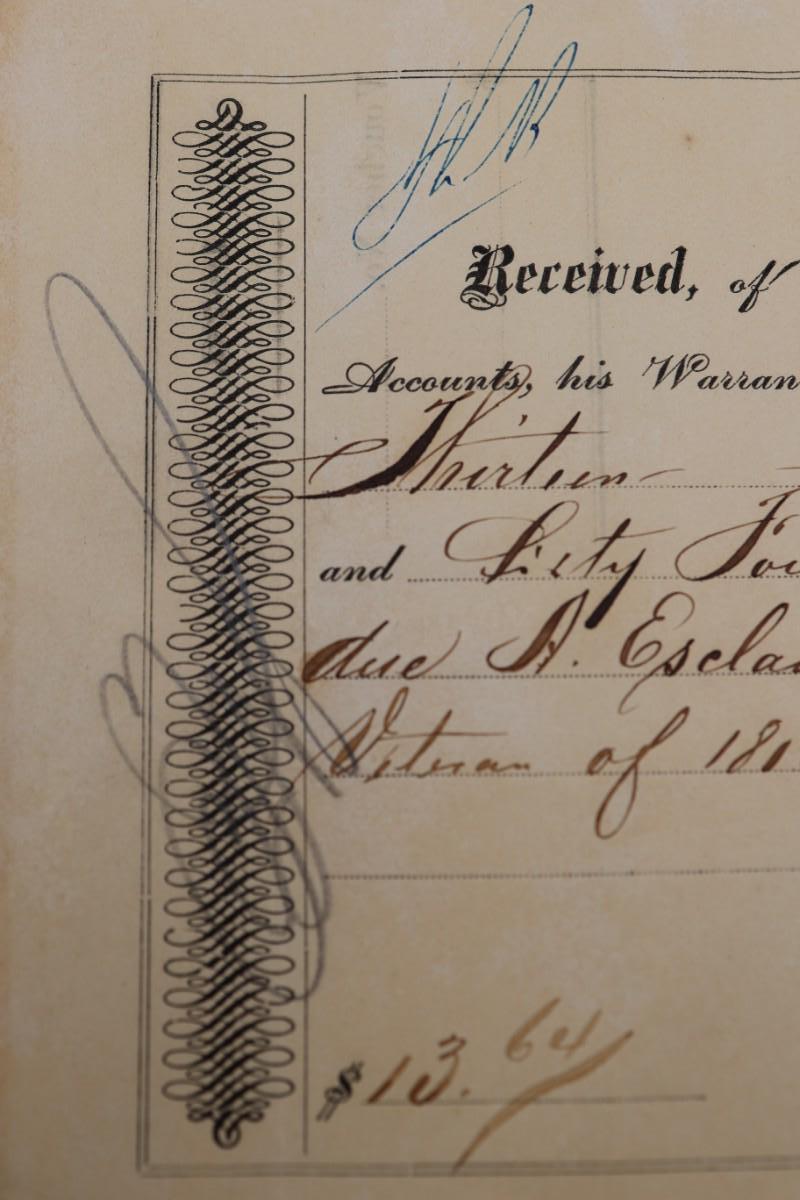 Received, of
Accounts, his Warran
Thirteen
and Sixty Fou
due A. Escla
Veteran of 181
$ 13.64